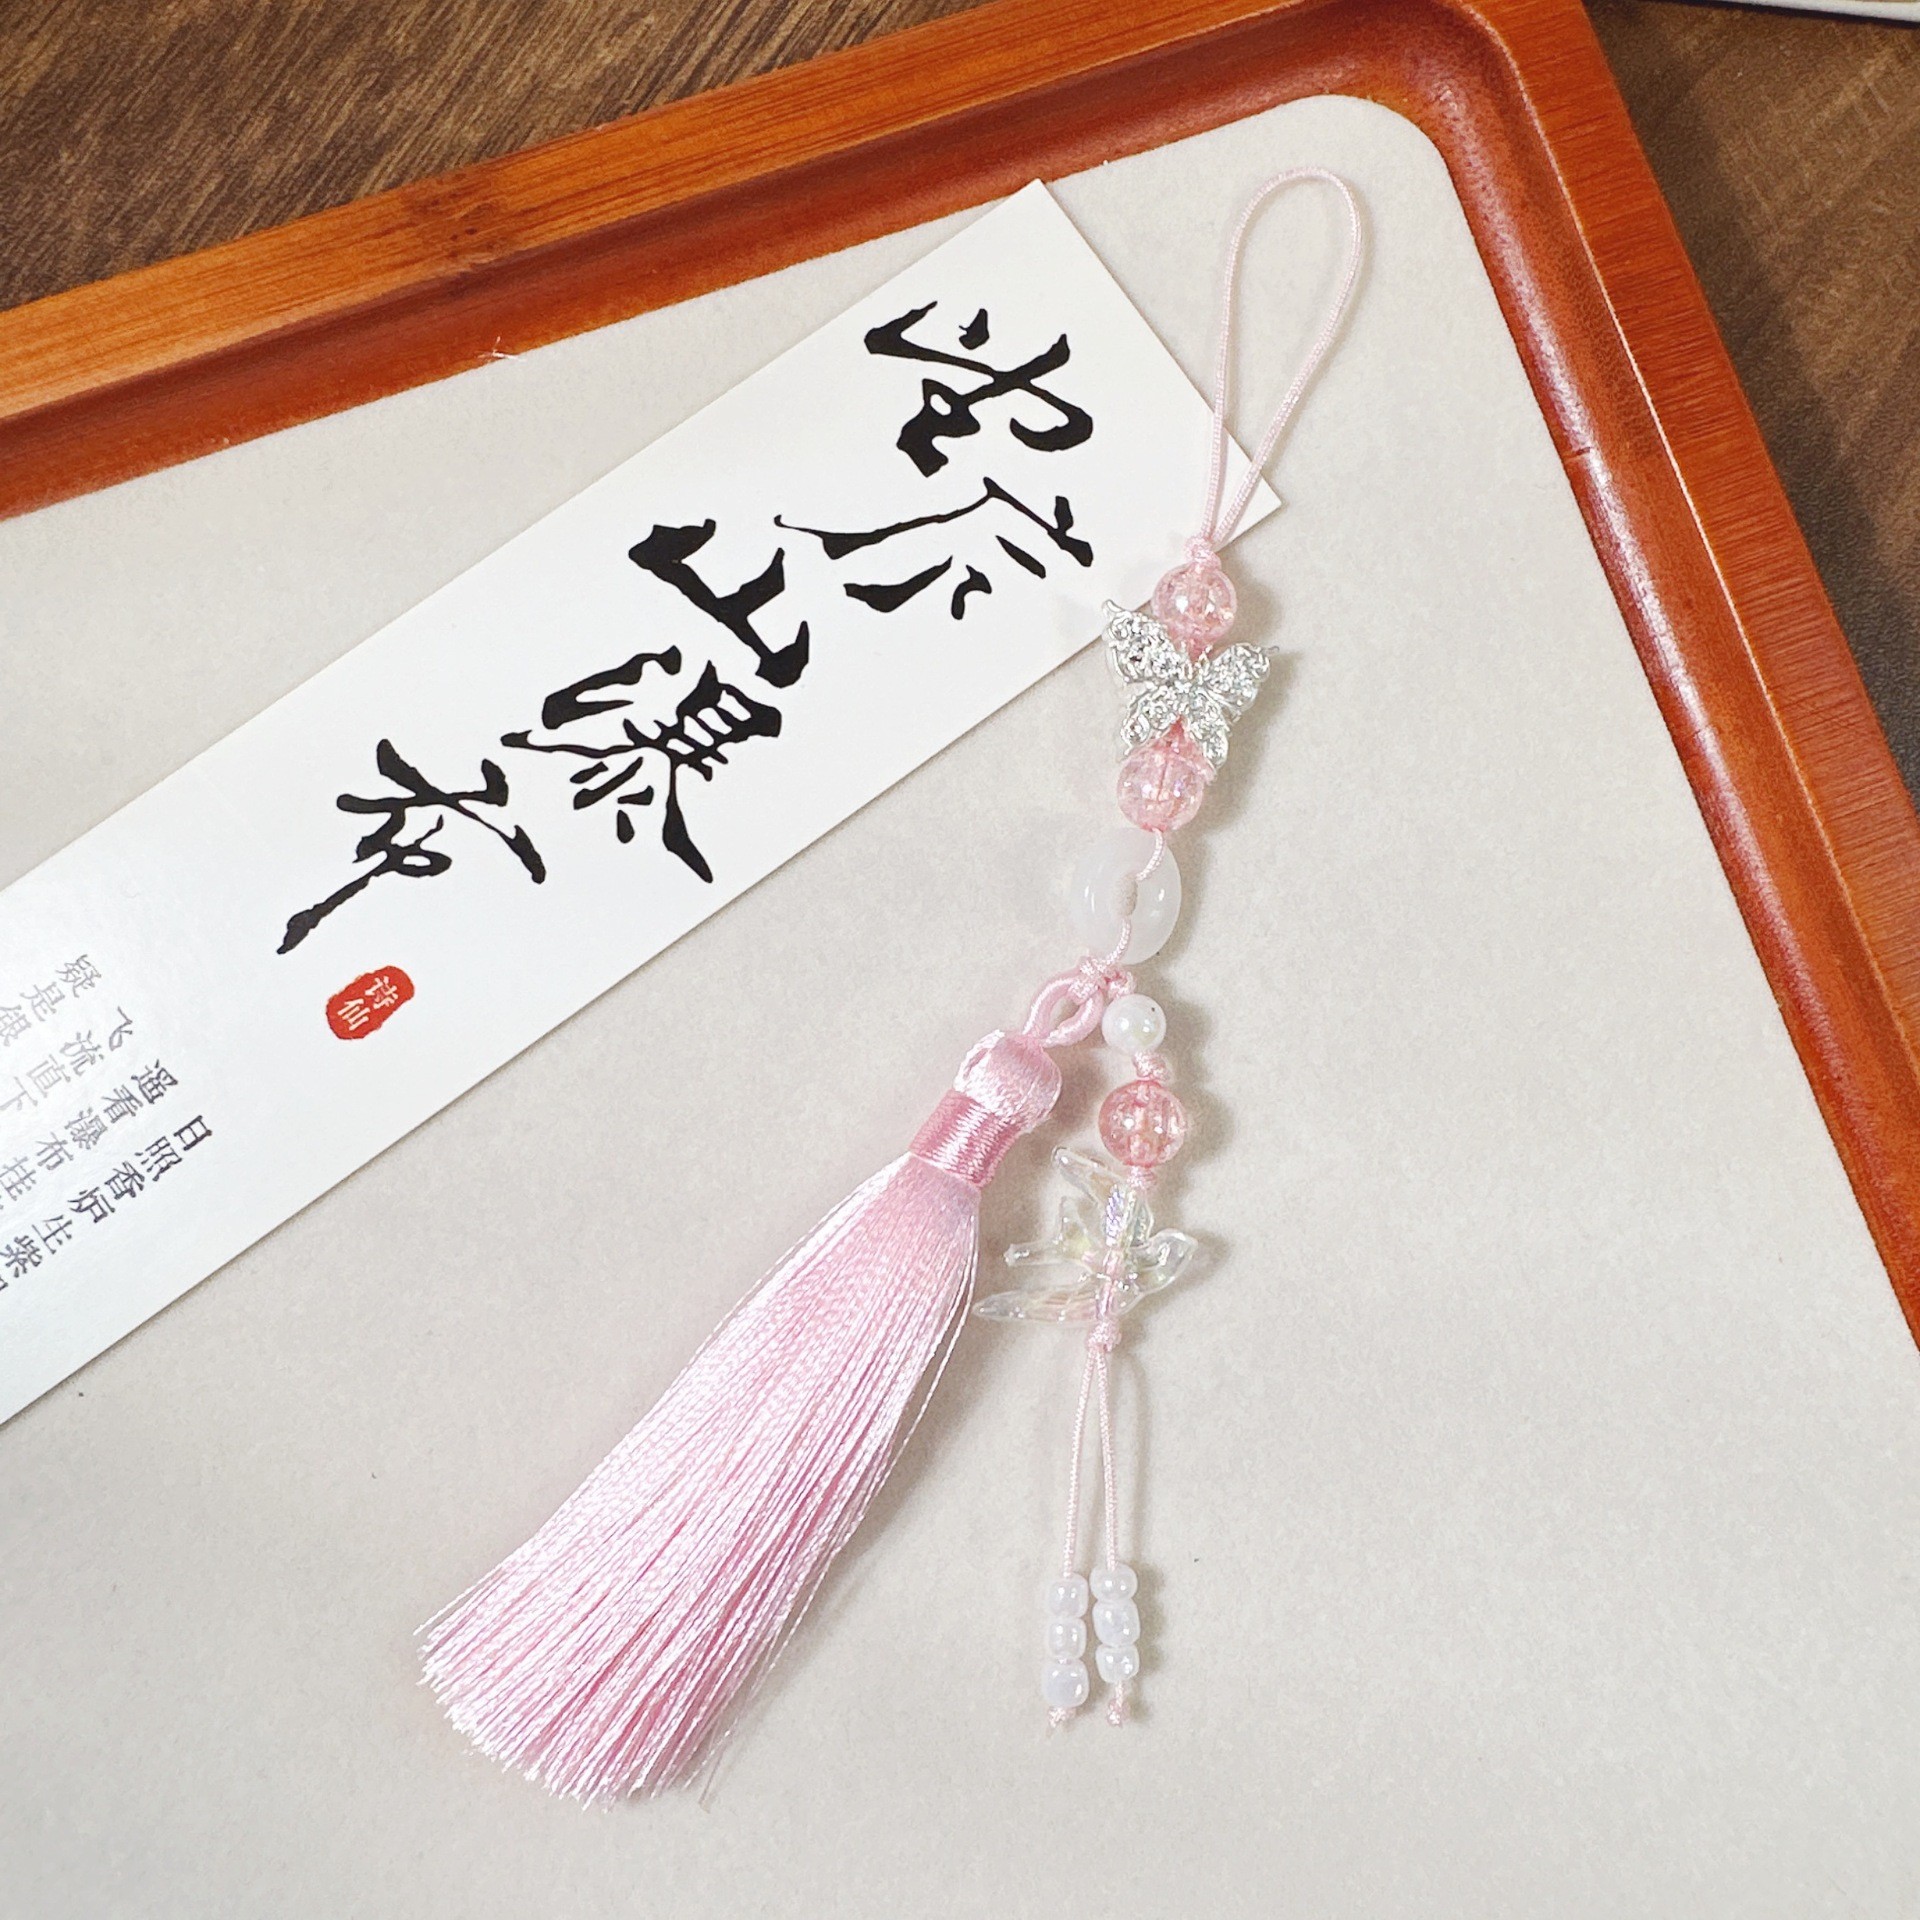 望庐山瀑布
诗仙
日照香炉生紫
遥看瀑布挂
飞流直下
疑是银